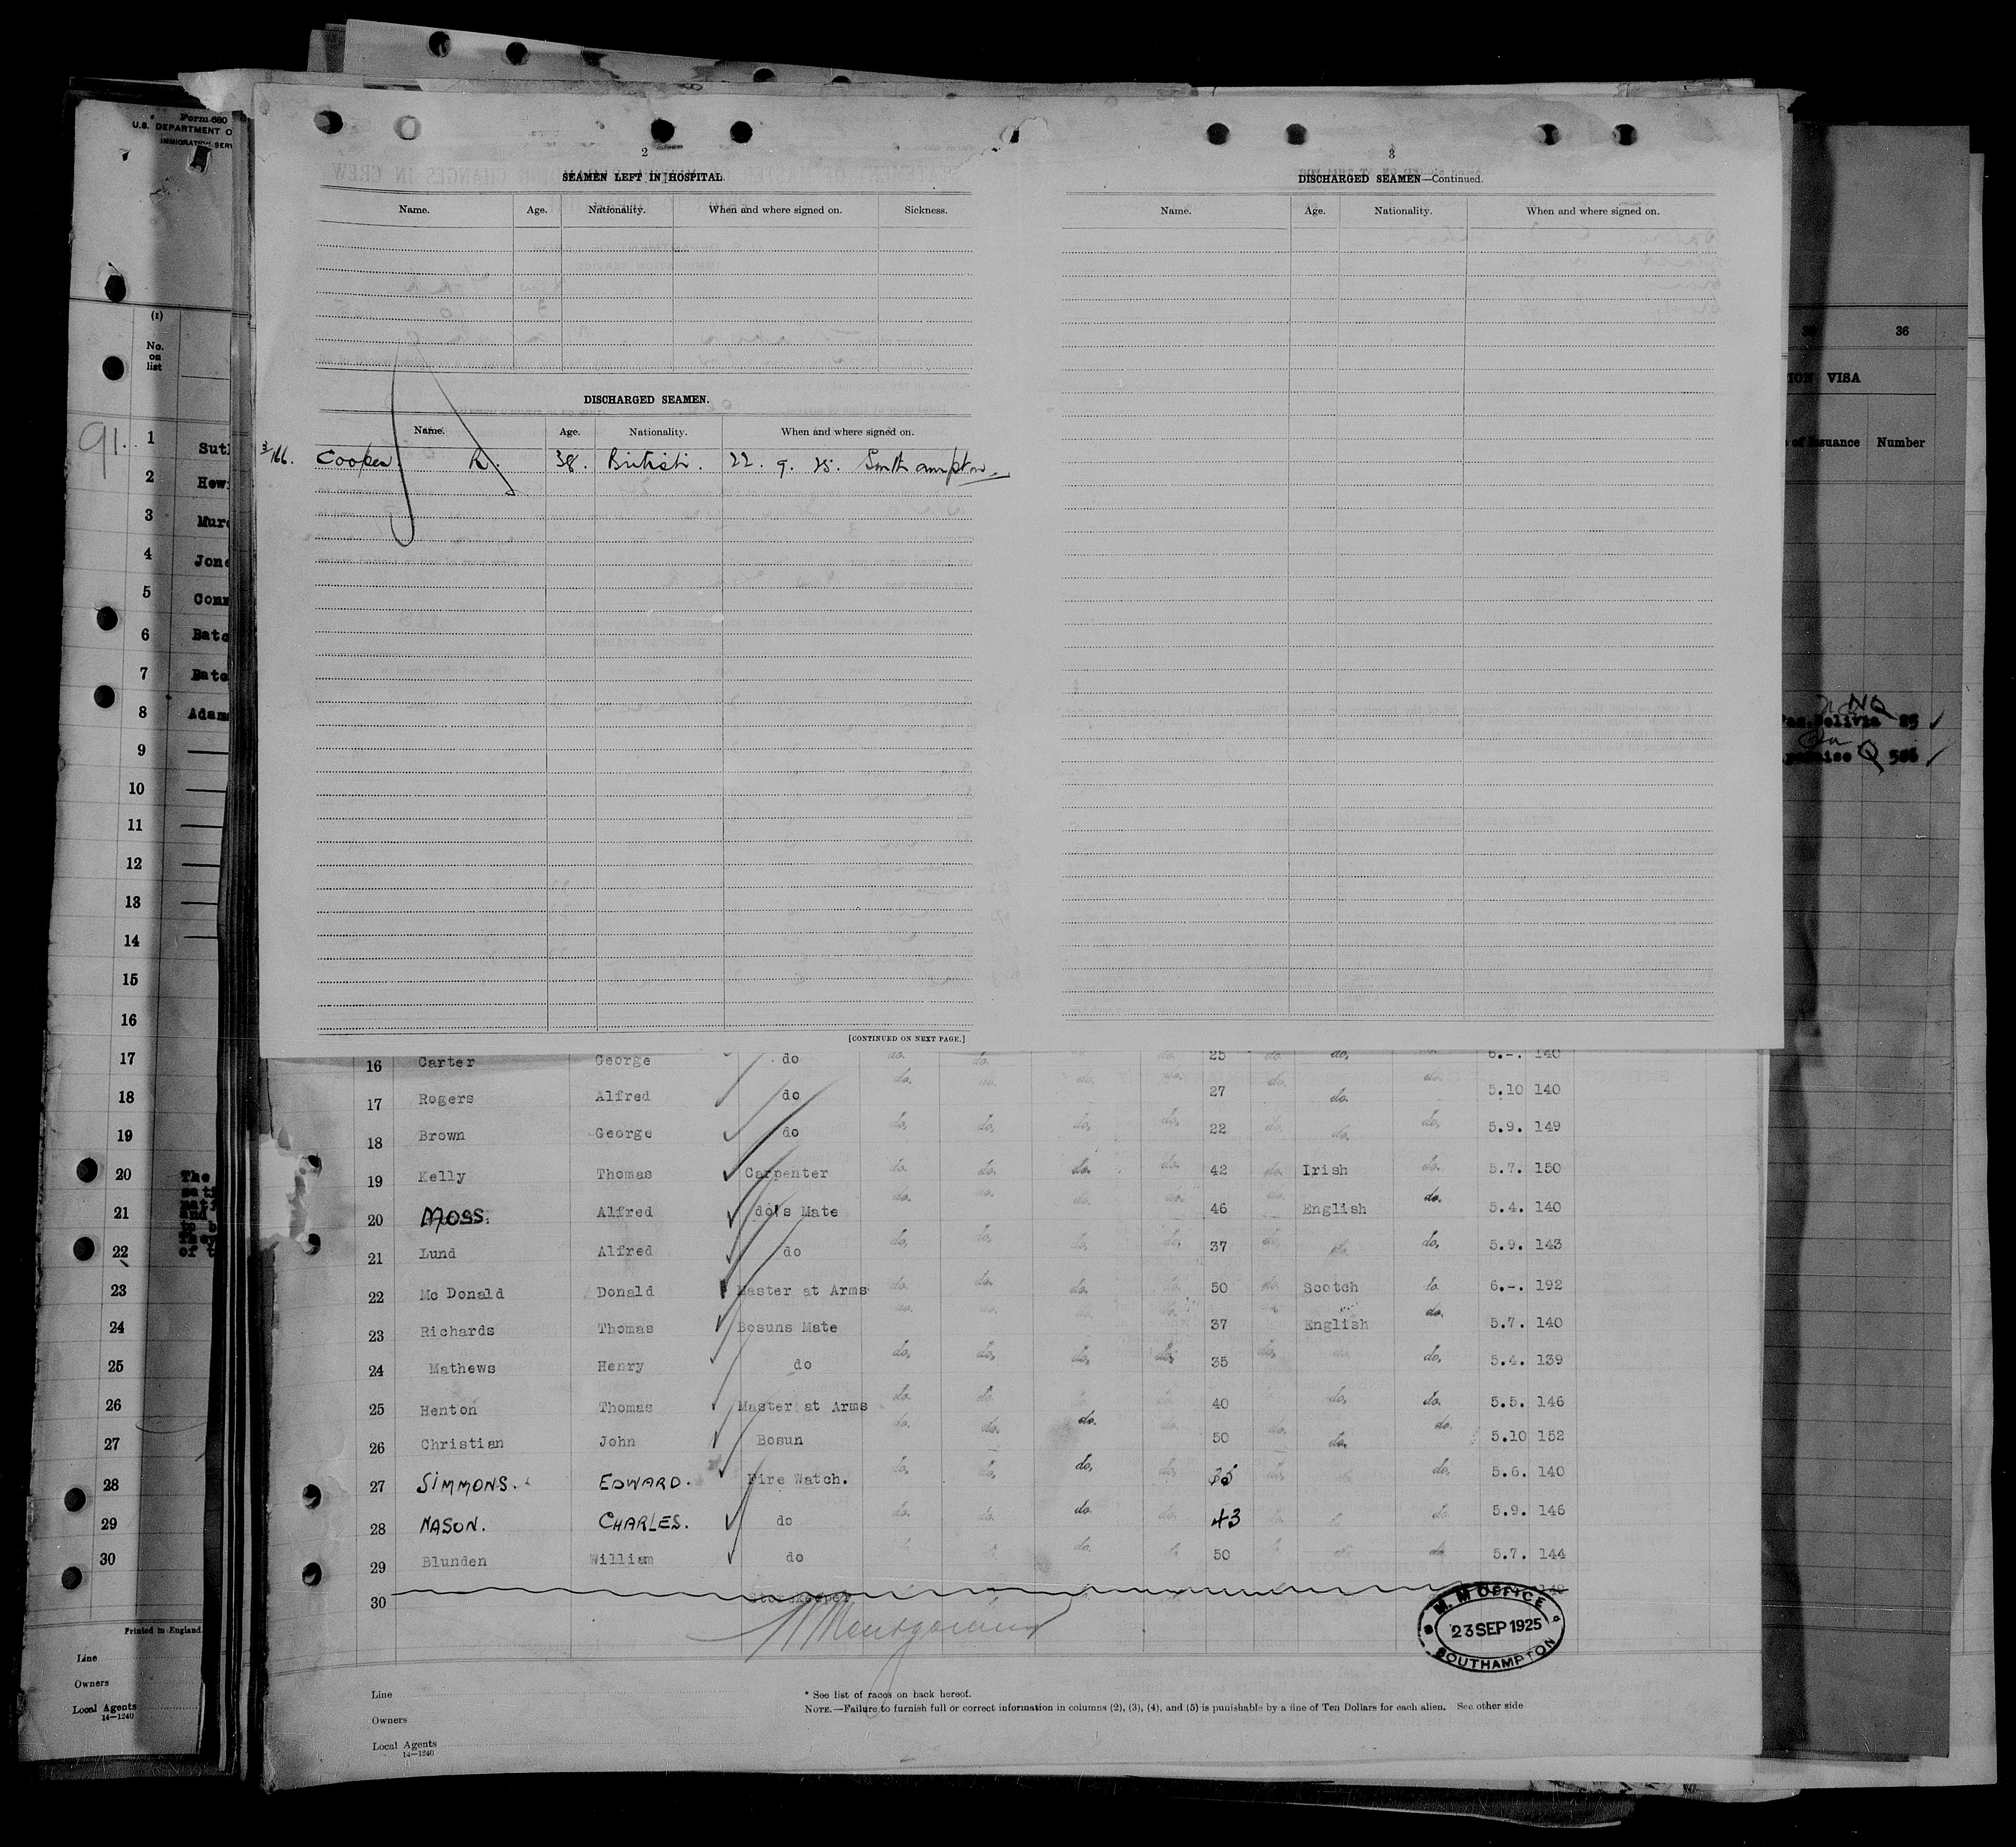 Form 680
U.S. DEPARTMENT O
IMMIGRATION SERV
(1)
No. on list
91.
1 Suth
2 Hewi
3 Murd
4 Jone
5 Conn
6 Batc
7 Batc
8 Adams
9
10
11
12
13
14
15
16
17
18
19
20 The
21
22 of t
23
24
25
26
27
28
29
30
Printed in England.
Line
Owners
Local Agents
14—1240
2
SEAMEN LEFT IN HOSPITAL
Name. Age. Nationality. When and where signed on. Sickness.
DISCHARGED SEAMEN.
Name. Age. Nationality. When and where signed on.
3/166. Cooper. R. 38. British. 22. 9. 25. Southampton
[CONTINUED ON NEXT PAGE.]
3
DISCHARGED SEAMEN—Continued.
Name. Age. Nationality. When and where signed on.
36
ION VISA
of Issuance Number
NO
Bolivia 85 ✓
Q 586 ✓
16 Carter George do do. do. do. 25 do. do. do. 6.-. 140
17 Rogers Alfred do do. do. do. 27 do. do. do. 5.10 140
18 Brown George do do. do. do. do. 22 do. do. do. 5.9. 149
19 Kelly Thomas Carpenter do. do. do. do. 42 do. Irish do. 5.7. 150
20 MOSS. Alfred do's Mate do. do. do. do. 46 do. English do. 5.4. 140
21 Lund Alfred do do. do. do. do. 37 do. do. do. 5.9. 143
22 Mc Donald Donald Master at Arms do. do. do. 50 do. Scotch do. 6.-. 192
23 Richards Thomas Bosuns Mate do. do. 37 English do. 5.7. 140
24 Mathews Henry do do. do. do. do. 35 do. do. 5.4. 139
25 Henton Thomas Master at Arms do. do. 40 do. do. 5.5. 146
26 Christian John Bosun do. do. do. do. 50 do. do. do. 5.10 152
27 SIMMONS. EDWARD. Fire Watch. do. do. do. do. 35 do. do. 5.6. 140
28 MASON. CHARLES. do do. do. do. do. 43 do. 5.9. 146
29 Blunden William do do. 50 do 5.7. 144
30 Storekeeper
M. M OFFICE
23 SEP 1925
SOUTHAMPTON
Line
Owners
Local Agents
14—1240
* See list of races on back hereof.
NOTE.—Failure to furnish full or correct information in columns (2), (3), (4), and (5) is punishable by a fine of Ten Dollars for each alien. See other side